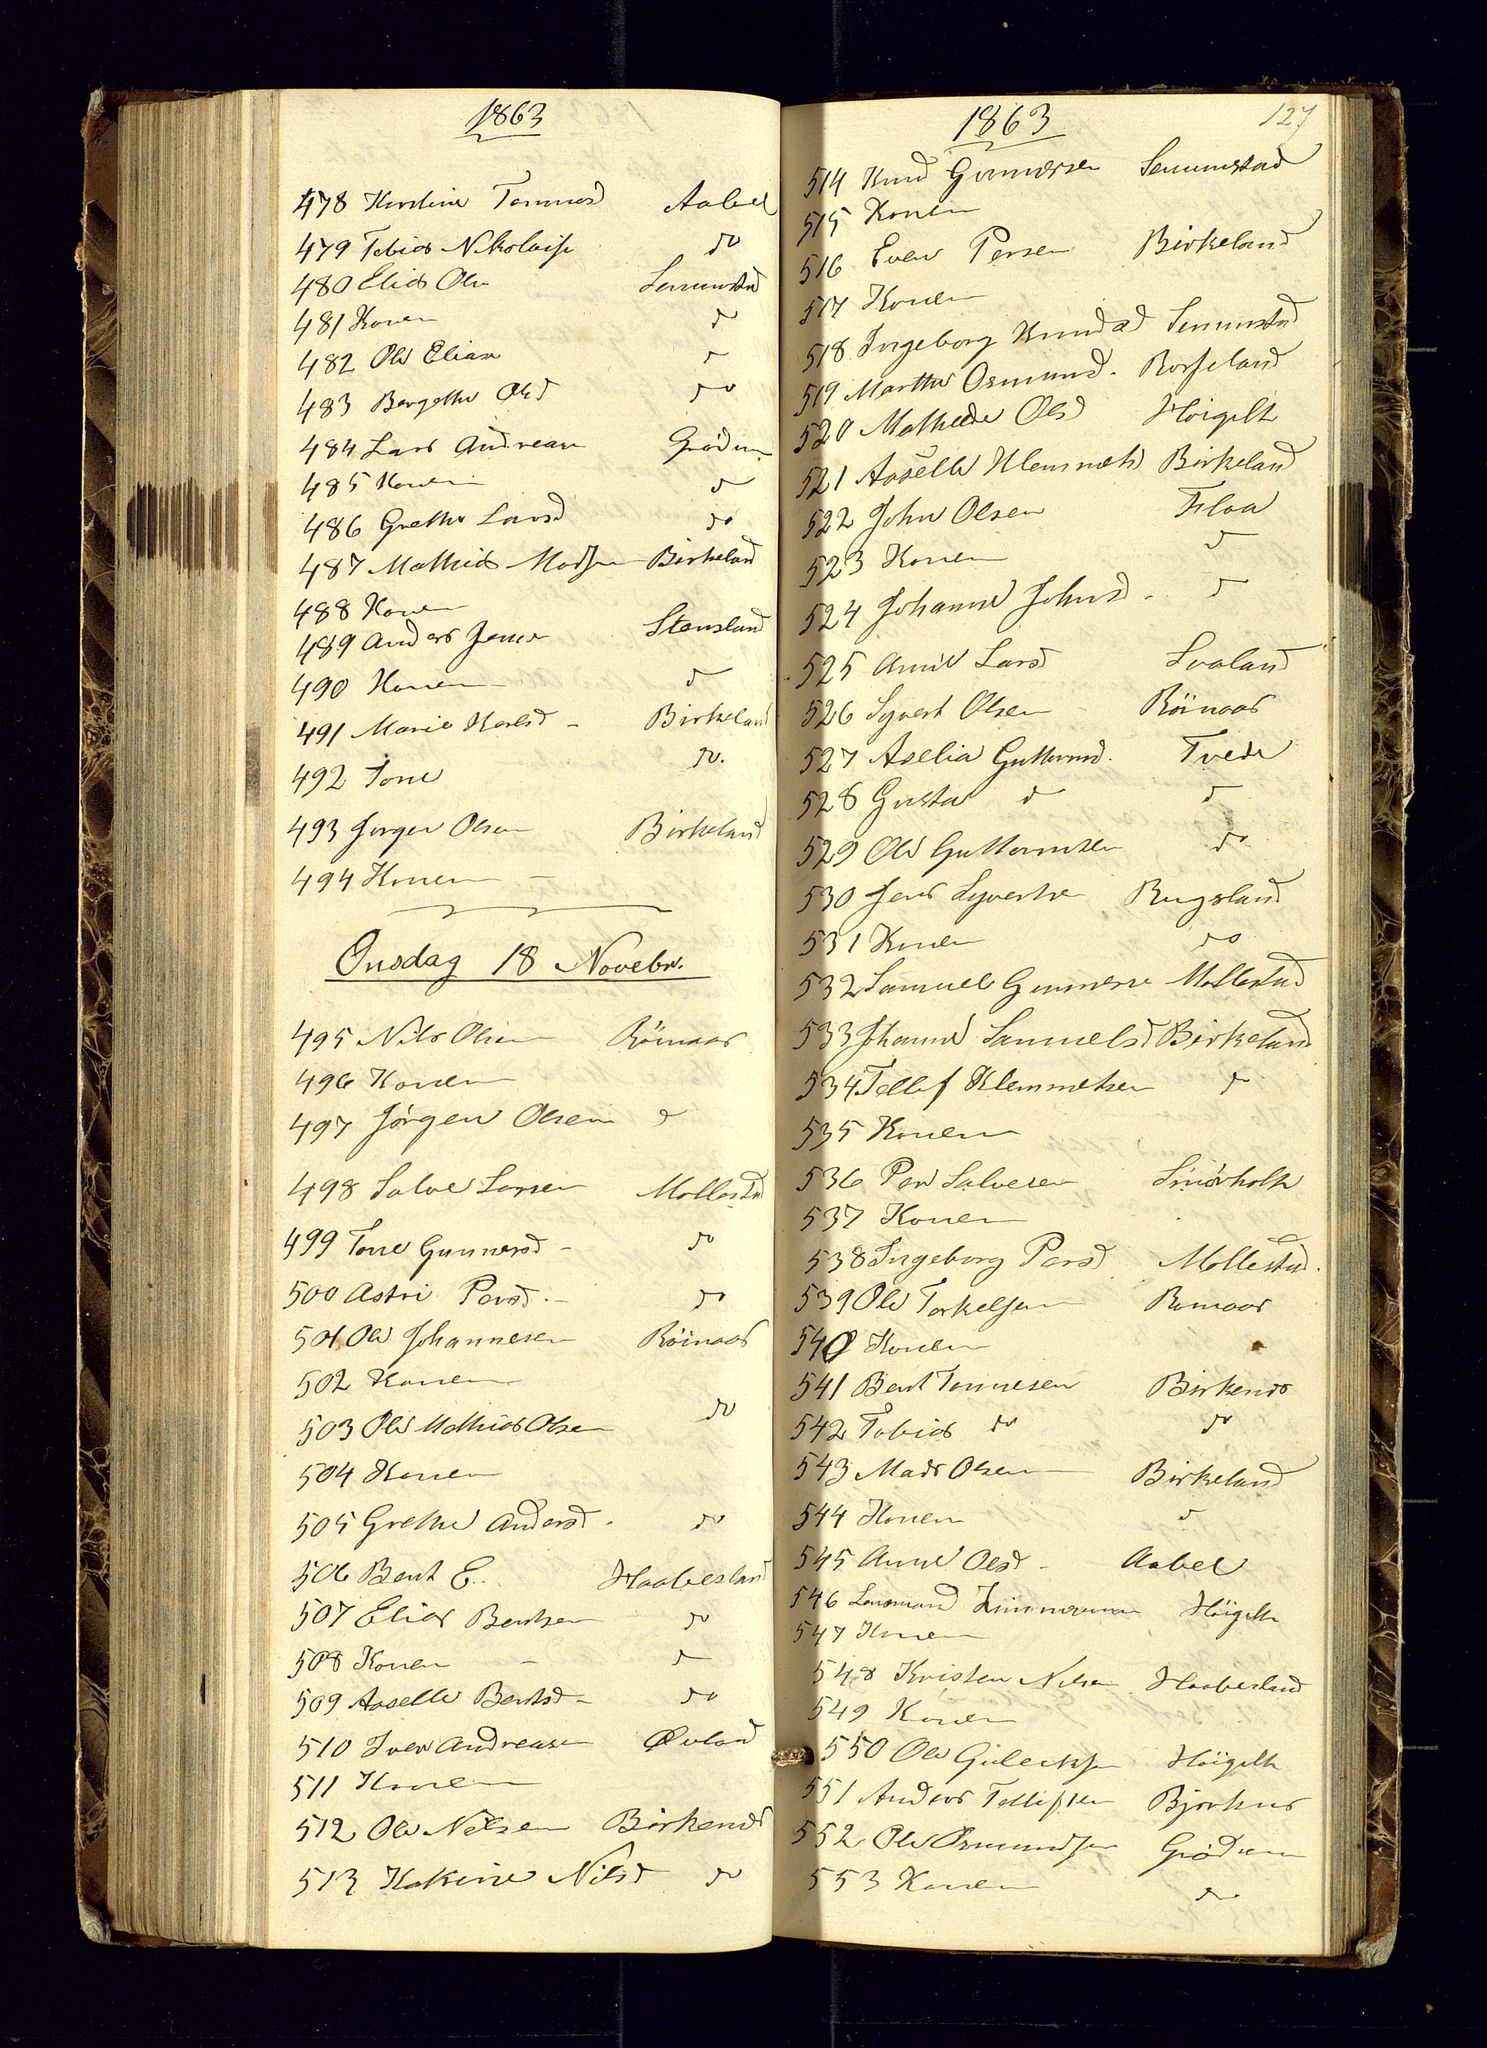 1863
478 Kirstine Tommesd Aabel
479 Tobias Nikolais do
480 Elias Ols Senumstad
481 Konen d
482 Ole Elias d
483 Bergethe Olsd do
484 Lars Andreas Grödum
485 Konen d
486 Grethe Larsd do
487 Mathias Madsen Birkeland
488 Konen
489 Anders Jens Stensland
490 Konen d
491 Marie Karlsd - Birkeland
492 Tone do.
493 Jørgen Olsen Birkeland
494 Konen -
Onsdag 18 Novebr.
495 Nils Olsen Röinaas
496 Konen
497 Jørgen Olsen d
498 Salve Larsen Mollestad
499 Tone Gunnersd - do
500 Astri Persd. - do
501 Ole Johannesen Röinaas
502 Konen
503 Ole Mathias Olsen do
504 Konen
505 Grethe Andersd - do
506 Bent E.. Haabesland
507 Elias Bentsen do
508 Konen - d
509 Aaselle Bentsd - do
510 Iver Andreasen Øvland
511 Konen
512 Ole Nilsen Birkenes
513 Kakine Nilsd do
1863 127
514 Knud Gunnersen Senumstad
515 Konen
516 Even Persen Birkeland
517 Konen
518 Ingeborg Knudsd Senumstad
519 Marthe Osmund.
520 Mathilde Olsd Höigilt
521 Aaselle Klemmets Birkeland
522 John Olsen Flaa
523 Konen d
524 Johanne Johnsd - d
525 Anne Larsd Svaland
526 Syvert Olsen Röinaas
527 Aselia Guttormd. Tvede
528 Gusta d d
529 Ole Guttormsen do
530 Jens Syverts Rugsland
531 Konen do
532 Samuel Gunnerse Mollestad
533 Johanne Samuelsd Birkeland
534 Tellef Klemmetsen d
535 Konen
536 Per Salvesen
537 Konen
538 Ingeborg Persd Mollestad.
539 Ole Torkelsen Rønaas
540 Konen
541 Bent Tønnesen Birkenes
542 Tobias do do
543 Mads Olsen Birkeland
544 Konen d
545 Anne Olsd - Aabel
546 Lensmand Höigilt
547 Konen
548 Kristen Nilsen Haabesland
549 Konen
550 Ole Gulecks Höigilt
551 Anders Tellefsen Bjorknes
552 Ole Osmundsen Grödum
553 Konen do